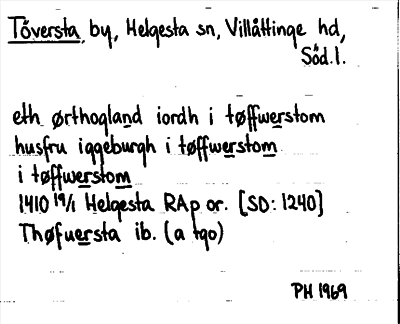 Töversta, by, Helgesta sn, Villåttinge hd,
Söd.l.
eth ørthogland iordh i tøffwerstom
husfru iggeburgh i tøffwerstom
i tøffwerstom
1410 19/1 Helgesta RAp or. [SD: 1240]
Thøfuersta ib. (a tgo)
PH 1969